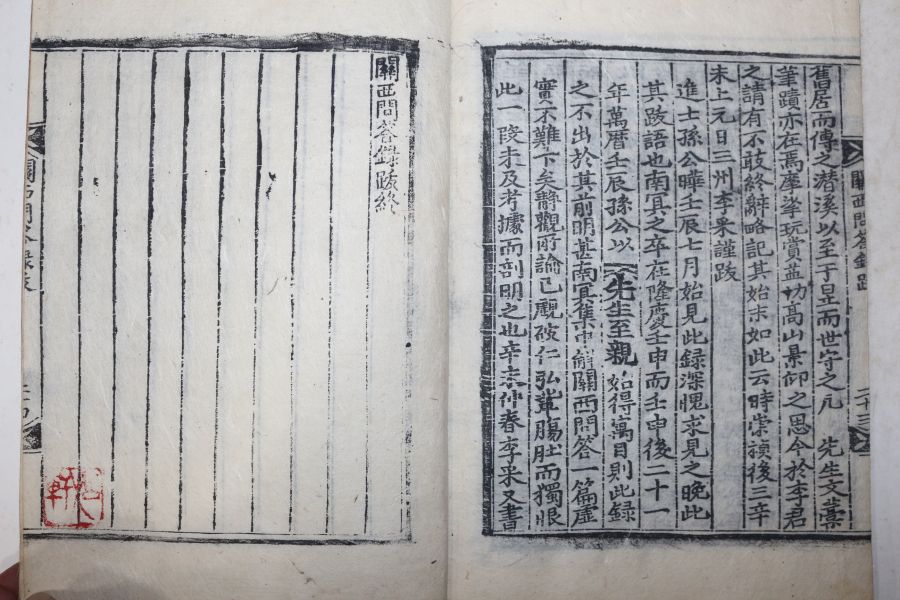 舊居而傳之潜溪以至于昱而世守之凡　先生文藁
筆蹟亦在焉摩挲玩賞益切高山景仰之思今於李君
之請有不敢終辭略記其始末如此云時崇禎後三辛
未上元日三州李采謹跋
進士孫公曄壬辰七月始見此録深愧求見之晚此
其跋語也南冥之卒在隆慶壬申而壬申後二十一
年萬曆壬辰孫公以　先生至親　始得寓目則此録
之不出於其前明甚南冥集中解關西問答一篇虛
實不難卞矣靜觀所諭已覷破仁弘輩膓肚而獨恨
此一段未及考據而剖明之也辛未仲春李采又書
關西問答録跋
二十三
關西問答録跋終
關西問答録跋
二十四